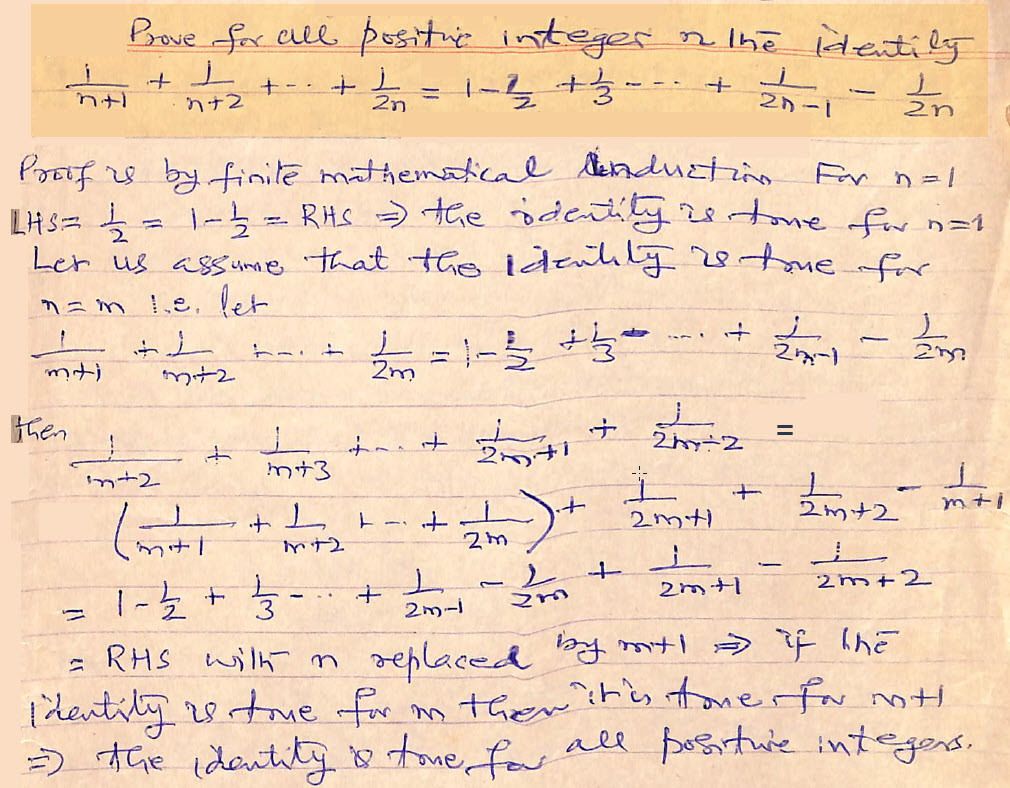 Prove for all positive integer n the identity
1/(n+1) + 1/(n+2) + -- + 1/2n = 1 - 1/2 + 1/3 - -- + 1/(2n-1) - 1/2n
Proof is by finite mathematical induction For n=1
LHS = 1/2 = 1 - 1/2 = RHS ⇒ the identity is true for n=1
Let us assume that the identity is true for
n = m i.e. let
1/(m+1) + 1/(m+2) + -- + 1/2m = 1 - 1/2 + 1/3 - ... + 1/(2m-1) - 1/2m
then
1/(m+2) + 1/(m+3) + -- + 1/(2m+1) + 1/(2m+2) =
(1/(m+1) + 1/(m+2) + -- + 1/2m) + 1/(2m+1) + 1/(2m+2) - 1/(m+1)
= 1 - 1/2 + 1/3 - .. + 1/(2m-1) - 1/2m + 1/(2m+1) - 1/(2m+2)
= RHS with n replaced by m+1 ⇒ if the
identity is true for m then it is true for m+1
⇒ the identity is true for all positive integers.